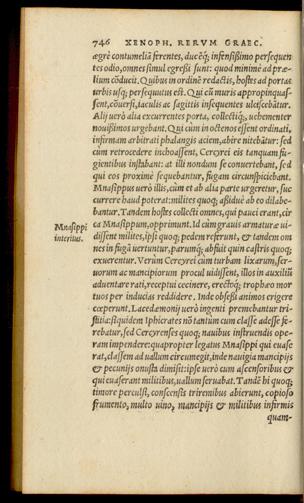 746 XENOPH. RERVM GRAEC.
ægrè contumeliā ferentes, ducēq́; infensißimo persequen
tes odio, omnes simul egreßi sunt: quod minimè ad præ-
lium cōducit. Quibus in ordinē redactis, hostes ad portas
urbis usq; persequutus est. Qui cū muris appropinquas-
sent, cōuersi, iaculis ac sagittis insequentes ulciscebātur.
Alij uerò alia excurrentes porta, collectiq́;, uehementer
nouißimos urgebant. Qui cùm in octenos essent ordinati,
infirmam arbitrati phalangis aciem, abire nitebātur: sed
cùm retrocedere inchoassent, Cercyrei eis tanquam fu-
gientibus instabant: at illi nondum se conuertebant, sed
qui eos proximè sequebantur, fugam circunspiciebant.
Mnasippus uerò illis, cùm et ab alia parte urgeretur, suc
currere haud poterat: milites quoq; aßiduè ab eo dilabe-
bantur. Tandem hostes collecti omnes, qui pauci erant, cir
ca Mnasippum, opprimunt. Id cùm grauis armaturæ ui-
Mnasippi
interitus.
dissent milites, ipsi quoq; pedem referunt, & tandem om
nes in fugā uertuntur, parumq́; abfuit quin castris quoq;
exuerentur. Verùm Cercyrei cùm turbam lixarum, ser-
uorum ac mancipiorum procul uidissent, illos in auxiliū
aduentare rati, receptui cecinere, erectoq́; trophæo mor
tuos per inducias reddidere. Inde obseßi animos erigere
cœperunt. Lacedæmonij uerò ingenti premebantur tri-
stitia: siquidem Iphicrates nō tantùm cum classe adesse fe-
rebatur, sed Cercyrenses quoq; nauibus instruendis ope-
ram impendere: quapropter legatus Mnasippi qui euase
rat, classem ad uallum circumegit, inde nauigia mancipijs
& pecunijs onusta dimisit: ipse uerò cum ascensoribus &
qui euaserant militibus, uallum seruabat. Tandē hi quoq;
timore perculsi, conscensis triremibus abierunt, copioso
frumento, multo uino, mancipijs & militibus infirmis
quam-